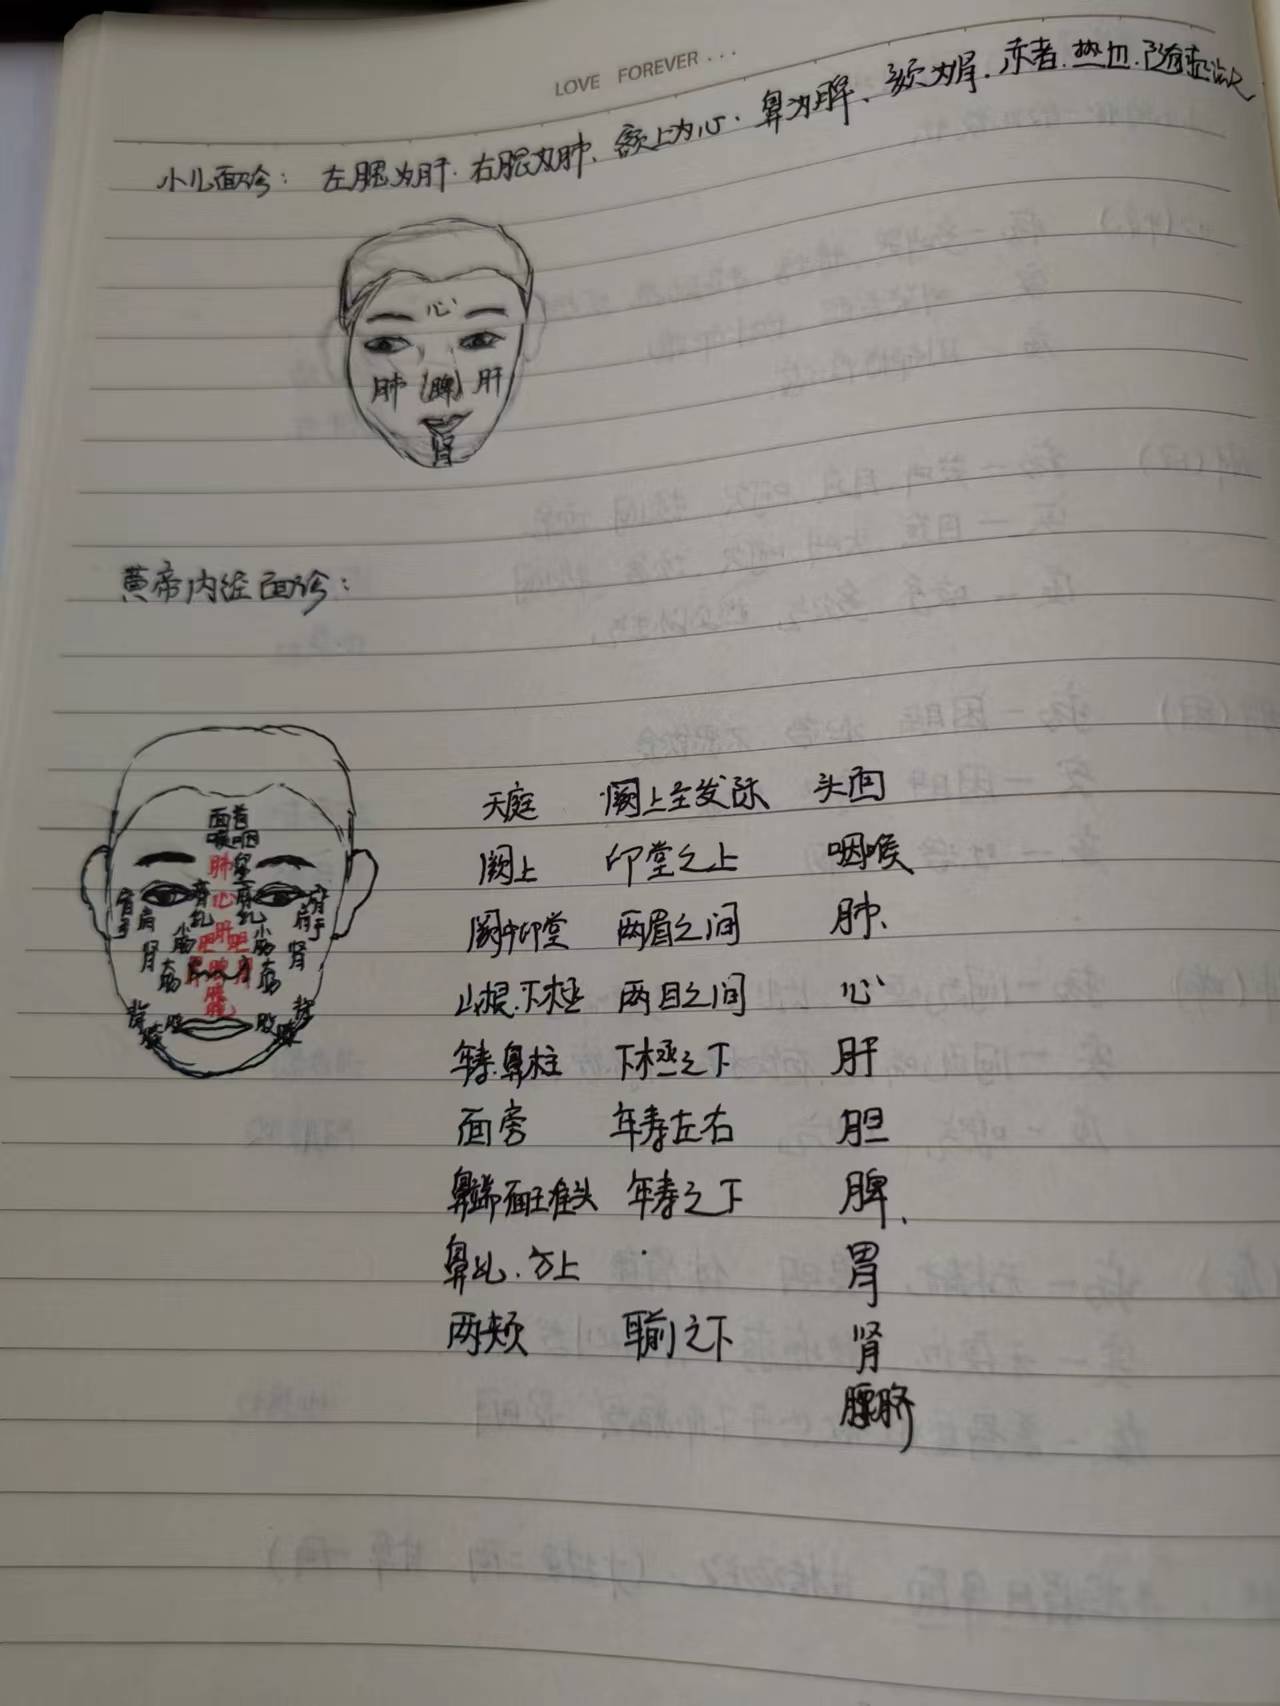 LOVE FOREVER...
小儿面诊： 左腮为肝. 右腮为肺、额上为心. 鼻为脾、颏为肾. 赤者.热也.随证治之
心
肺 脾 肝
肾
黄帝内经面诊：
面首
咽喉
肺
心
肝
胆 胆
脾
肩 肩
肾 肾
小肠 小肠
大肠 大肠
股 股
天庭 阙上至发际 头面
阙上 印堂之上 咽喉
阙中印堂 两眉之间 肺
山根.下极 两目之间 心
年寿.鼻柱 下极之下 肝
面旁 年寿左右 胆
鼻端面王准头 年寿之下 脾、
鼻孔.方上 胃
两颊 耳前之下 肾
腰脐